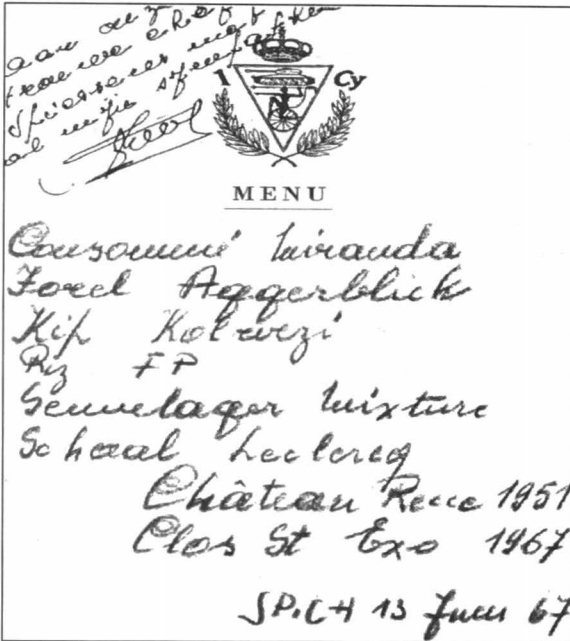 aan
trouwe chef
al mijn
1 Cy
MENU
Consommé Miranda
Forel Aggerblick
Kip Kolwezi
Riz FP
Sennelager Mixture
Schaal Leclercq
Château Rece 1951
Clos St Exo 1967
SPICH 13 Juni 67